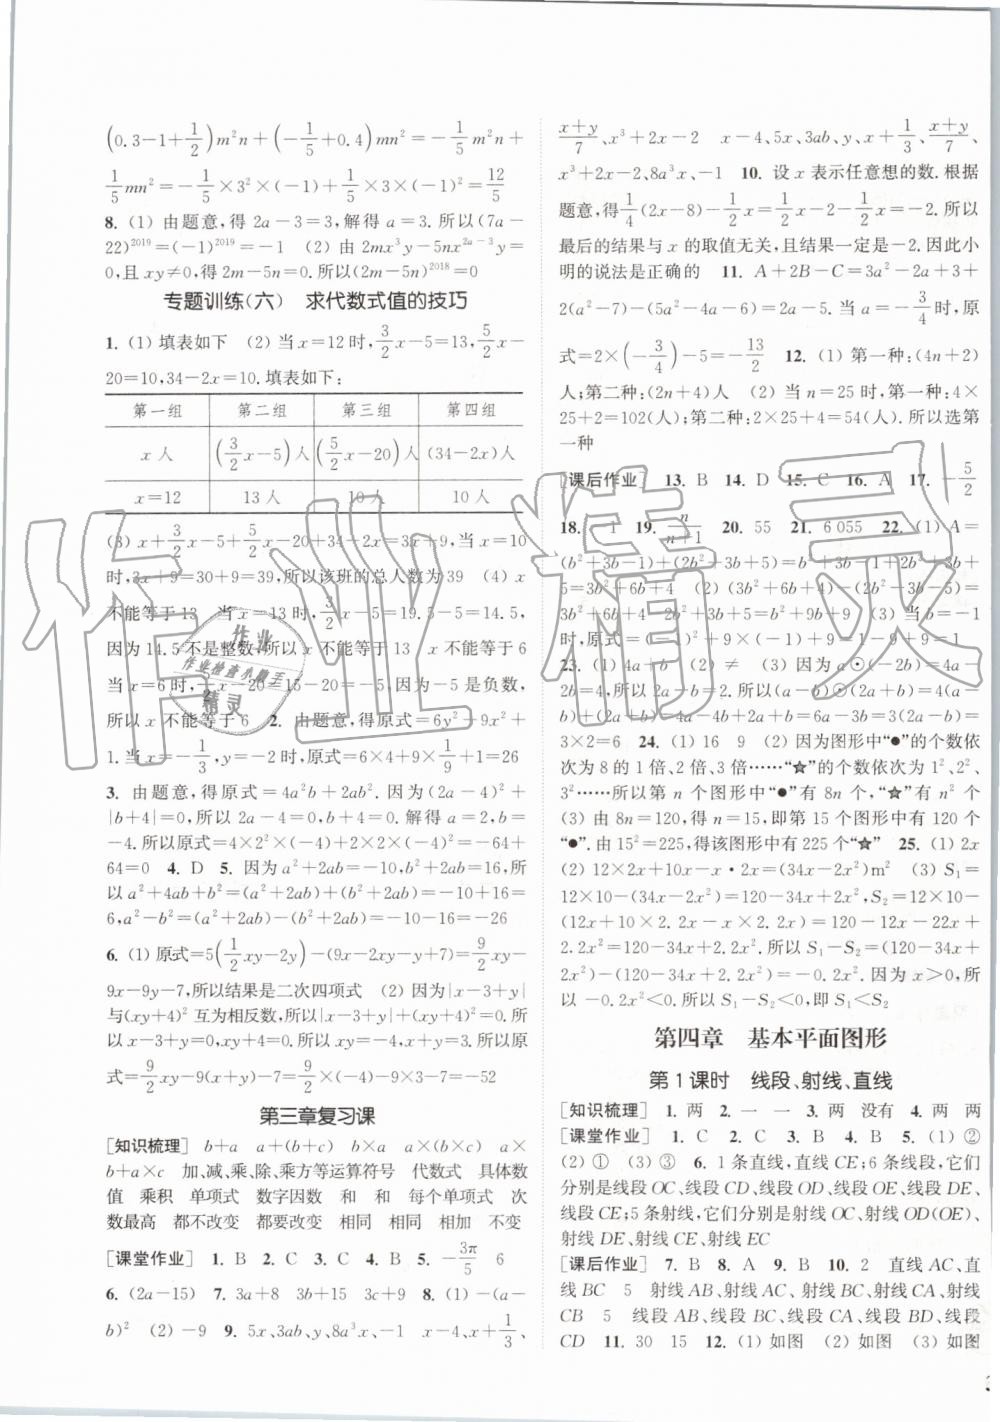 (0.3−1+1/2)m²n+(−1/5+0.4)mn²=−1/5m²n+
1/5mn²=−1/5×3²×(−1)+1/5×3×(−1)²=12/5
8. (1) 由题意,得 2a−3=3,解得 a=3.所以(7a−
22)²⁰¹⁹=(−1)²⁰¹⁹=−1 (2) 由 2mx³y−5nx²ᵃ⁻³y=
0,且 xy≠0,得 2m−5n=0.所以(2m−5n)²⁰¹⁸=0
专题训练(六) 求代数式值的技巧
1. (1) 填表如下 (2) 当 x=12 时,3/2x−5=13,5/2x−
20=10,34−2x=10.填表如下:
第一组 第二组 第三组 第四组
x 人 (3/2x−5)人 (5/2x−20)人 (34−2x)人
x=12 13 人 10 人 10 人
(3) x+3/2x−5+5/2x−20+34−2x=3x+9,当 x=10
时,3x+9=30+9=39,所以该班的总人数为 39 (4) x
不能等于 13 当 x=13 时,3/2x−5=19.5−5=14.5,
因为 14.5 不是整数,所以 x 不能等于 13 x 不能等于 6
当 x=6 时,5/2x−20=15−20=−5.因为−5 是负数,
所以 x 不能等于 6 2. 由题意,得原式=6y²+9x²+
1.当 x=−1/3,y=−2 时,原式=6×4+9×1/9+1=26
3. 由题意,得原式=4a²b+2ab².因为(2a−4)²+
|b+4|=0,所以 2a−4=0,b+4=0.解得 a=2,b=
−4.所以原式=4×2²×(−4)+2×2×(−4)²=−64+
64=0 4. D 5. 因为 a²+2ab=−10,b²+2ab=16,所
以 a²+4ab+b²=(a²+2ab)+(b²+2ab)=−10+16=
6,a²−b²=(a²+2ab)−(b²+2ab)=−10−16=−26
6. (1) 原式=5(1/2xy−2y)−(9x−2xy−y+7)=9/2xy−
9x−9y−7,所以结果是二次四项式 (2) 因为|x−3+y|
与(xy+4)² 互为相反数,所以|x−3+y|+(xy+4)²=0.
所以 x−3+y=0,xy+4=0.所以 x+y=3,xy=−4.所以原
式=9/2xy−9(x+y)−7=9/2×(−4)−9×3−7=−52
第三章复习课
[知识梳理] b+a a+(b+c) b×a a×(b×c) a×
b+a×c 加、减、乘、除、乘方等运算符号 代数式 具体数
值 乘积 单项式 数字因数 和 和 每个单项式 次
数最高 都不改变 都要改变 相同 相同 相加 不变
[课堂作业] 1. B 2. C 3. C 4. C 5. −3π/5 6
6. (2a−15) 7. 3a+8 3b+15 3c+9 8. (1) −(a−
b)² (2) −9 9. 5x、3ab、y、8a³x、−1 x−4、x+1/3、
x+y/7、x³+2x−2 x−4、5x、3ab、y、x+1/3、x+y/7、
x³+2x−2、8a³x、−1 10. 设 x 表示任意想的数.根据
题意,得1/4(2x−8)−1/2x=1/2x−2−1/2x=−2.所以
最后的结果与 x 的取值无关,且结果一定是−2.因此小
明的说法是正确的 11. A+2B−C=3a²−2a+3+
2(a²−7)−(5a²−4a−6)=2a−5.当 a=−3/4时,原
式=2×(−3/4)−5=−13/2 12. (1) 第一种:(4n+2)
人;第二种:(2n+4)人 (2) 当 n=25 时,第一种:4×
25+2=102(人);第二种:2×25+4=54(人).所以选第
一种
[课后作业] 13. B 14. D 15. C 16. A 17. −5/2
18. 1 19. n/n+1 20. 55 21. 6 055 22. (1) A=
(b²+3b−1)+(2b²+3b+5)=b²+3b−1+2b²+3b+
5=3b²+6b+4 (2) (3b²+6b+4)−(2b²−3b−5)=
3b²+6b+4−2b²+3b+5=b²+9b+9 (3) 当 b=−1
时,原式=(−1)²+9×(−1)+9=1−9+9=1
23. (1) 4a+b (2) ≠ (3) 因为 a⊙(−2b)=4a−
2b=4,所以 2a−b=2.所以(a−b)⊙(2a+b)=4(a−
b)+(2a+b)=4a−4b+2a+b=6a−3b=3(2a−b)=
3×2=6 24. (1) 16 9 (2) 因为图形中“●”的个数依
次为 8 的 1 倍、2 倍、3 倍……“☆”的个数依次为 1²、2²、
3²……所以第 n 个图形中“●”有 8n 个,“☆”有 n² 个
(3) 由 8n=120,得 n=15,即第 15 个图形中有 120 个
“●”.由 15²=225,得该图形中有 225 个“☆” 25. (1) 2x
(2) 12×2x+10x−x·2x=(34x−2x²)m² (3) S₁=
12×10−(34x−2x²)=120−34x+2x²,S₂=12×10−
(12x+10×2.2x−x×2.2x)=120−12x−22x+
2.2x²=120−34x+2.2x².所以 S₁−S₂=(120−34x+
2x²)−(120−34x+2.2x²)=−0.2x².因为 x>0,所
以 −0.2x²<0.所以 S₁−S₂<0,即 S₁<S₂
第四章 基本平面图形
第 1 课时 线段、射线、直线
[知识梳理] 1. 两 2. 一 一 3. 两 没有 4. 两 两
[课堂作业] 1. C 2. C 3. B 4. B 5. (1) ②
(2) ① (3) ③ 6. 1 条直线,直线 CE;6 条线段,它们
分别是线段 OC、线段 CD、线段 OD、线段 OE、线段 DE、
线段 CE;5 条射线,它们分别是射线 OC、射线 OD(OE)、
射线 DE、射线 CE、射线 EC
[课后作业] 7. B 8. A 9. B 10. 2 直线 AC、直
线 BC 5 射线 AB、射线 AC、射线 BC、射线 CA、射线
CB 5 线段 AB、线段 BC、线段 CA、线段 BD、线段
CD 11. 30 15 12. (1) 如图 (2) 如图 (3) 如图
作业精灵
作业
作业检查小助手
精灵